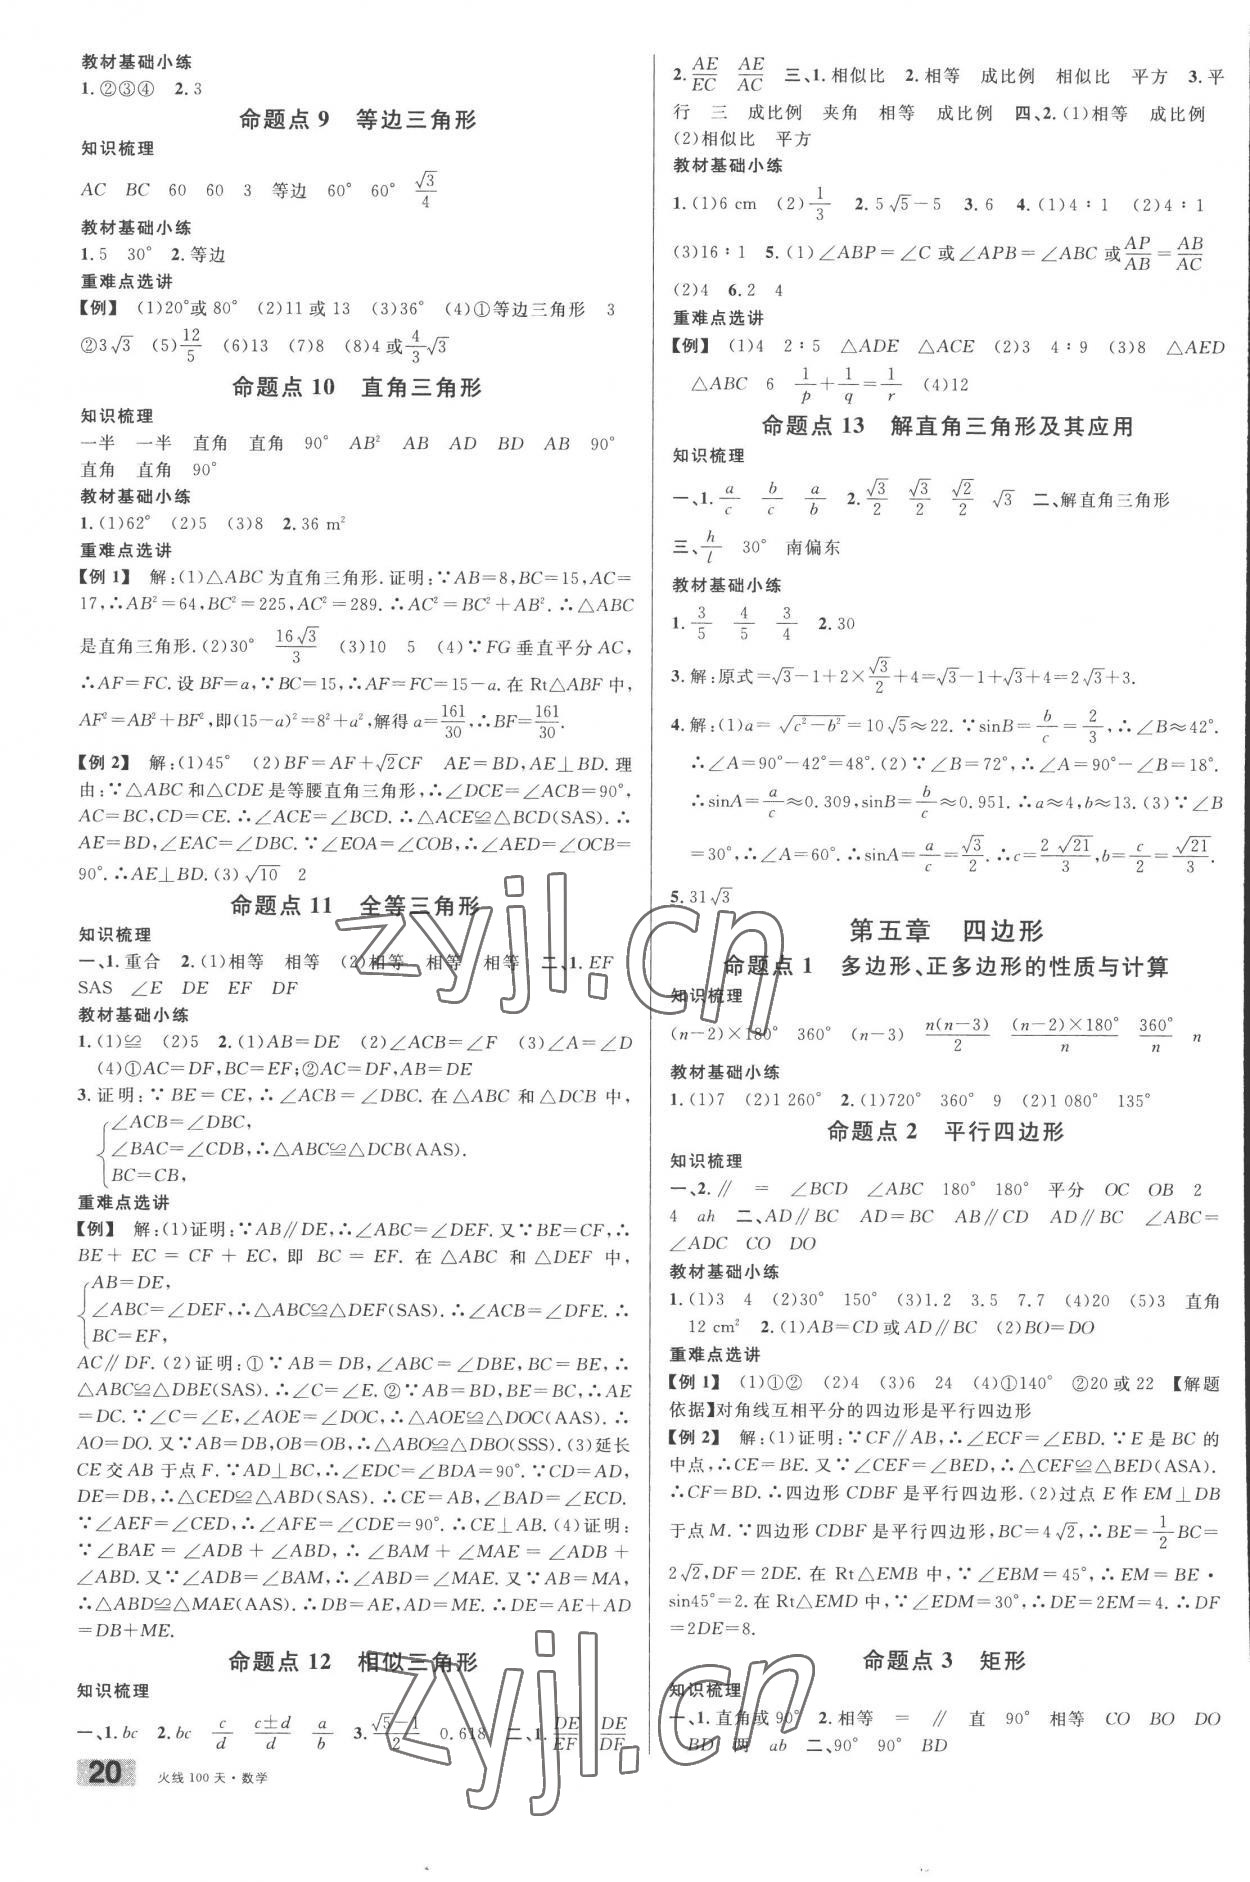 教材基础小练
1.②③④　2.3
命题点 9　等边三角形
知识梳理
AC　BC　60　60　3　等边　60°　60°　√3/4
教材基础小练
1.5　30°　2.等边
重难点选讲
【例】　(1)20°或 80°　(2)11 或 13　(3)36°　(4)①等边三角形　3
②3√3　(5)12/5　(6)13　(7)8　(8)4 或 4/3√3
命题点 10　直角三角形
知识梳理
一半　一半　直角　直角　90°　AB²　AB　AD　BD　AB　90°
直角　直角　90°
教材基础小练
1.(1)62°　(2)5　(3)8　2.36 m²
重难点选讲
【例 1】　解:(1)△ABC 为直角三角形.证明:∵AB=8,BC=15,AC=
17,∴AB²=64,BC²=225,AC²=289.∴AC²=BC²+AB².∴△ABC
是直角三角形.(2)30°　16√3/3　(3)10　5　(4)∵FG 垂直平分 AC,
∴AF=FC.设 BF=a,∵BC=15,∴AF=FC=15-a.在 Rt△ABF 中,
AF²=AB²+BF²,即(15-a)²=8²+a²,解得 a=161/30,∴BF=161/30.
【例 2】　解:(1)45°　(2)BF=AF+√2CF　AE=BD,AE⊥BD.理
由:∵△ABC 和△CDE 是等腰直角三角形,∴∠DCE=∠ACB=90°,
AC=BC,CD=CE.∴∠ACE=∠BCD.∴△ACE≌△BCD(SAS).∴
AE=BD,∠EAC=∠DBC.∵∠EOA=∠COB,∴∠AED=∠OCB=
90°.∴AE⊥BD.(3)√10　2
命题点 11　全等三角形
知识梳理
一、1.重合　2.(1)相等　相等　(2)相等　相等　相等　二、1.EF
SAS　∠E　DE　EF　DF
教材基础小练
1.(1)≌　(2)5　2.(1)AB=DE　(2)∠ACB=∠F　(3)∠A=∠D
(4)①AC=DF,BC=EF;②AC=DF,AB=DE
3.证明:∵BE=CE,∴∠ACB=∠DBC.在△ABC 和△DCB 中,
∠ACB=∠DBC,
∠BAC=∠CDB,∴△ABC≌△DCB(AAS).
BC=CB,
重难点选讲
【例】　解:(1)证明:∵AB∥DE,∴∠ABC=∠DEF.又∵BE=CF,∴
BE+EC=CF+EC,即 BC=EF.在△ABC 和△DEF 中,
AB=DE,
∠ABC=∠DEF,∴△ABC≌△DEF(SAS).∴∠ACB=∠DFE.∴
BC=EF,
AC∥DF.(2)证明:①∵AB=DB,∠ABC=∠DBE,BC=BE,∴
△ABC≌△DBE(SAS).∴∠C=∠E.②∵AB=BD,BE=BC,∴AE
=DC.∵∠C=∠E,∠AOE=∠DOC,∴△AOE≌△DOC(AAS).∴
AO=DO.又∵AB=DB,OB=OB,∴△ABO≌△DBO(SSS).(3)延长
CE 交 AB 于点 F.∵AD⊥BC,∴∠EDC=∠BDA=90°.∵CD=AD,
DE=DB,∴△CED≌△ABD(SAS).∴CE=AB,∠BAD=∠ECD.
∵∠AEF=∠CED,∴∠AFE=∠CDE=90°.∴CE⊥AB.(4)证明:
∵∠BAE=∠ADB+∠ABD,∴∠BAM+∠MAE=∠ADB+
∠ABD.又∵∠ADB=∠BAM,∴∠ABD=∠MAE.又∵AB=MA,
∴△ABD≌△MAE(AAS).∴DB=AE,AD=ME.∴DE=AE+AD
=DB+ME.
命题点 12　相似三角形
知识梳理
一、1.bc　2.bc　c/d　c±d/d　a/b　3.√5-1/2　0.618　二、1.DE/EF　DE/DF
20　火线 100 天·数学
2.AE/EC　AE/AC　三、1.相似比　2.相等　成比例　相似比　平方　3.平
行　三　成比例　夹角　相等　成比例　四、2.(1)相等　成比例
(2)相似比　平方
教材基础小练
1.(1)6 cm　(2)1/3　2.5√5-5　3.6　4.(1)4∶1　(2)4∶1
(3)16∶1　5.(1)∠ABP=∠C 或∠APB=∠ABC 或AP/AB=AB/AC
(2)4　6.2　4
重难点选讲
【例】　(1)4　2∶5　△ADE　△ACE　(2)3　4∶9　(3)8　△AED
△ABC　6　1/p+1/q=1/r　(4)12
命题点 13　解直角三角形及其应用
知识梳理
一、1.a/c　b/c　a/b　2.√3/2　√3/2　√2/2　√3　二、解直角三角形
三、h/l　30°　南偏东
教材基础小练
1.3/5　4/5　3/4　2.30
3.解:原式=√3-1+2×√3/2+4=√3-1+√3+4=2√3+3.
4.解:(1)a=√(c²-b²)=10√5≈22.∵sinB=b/c=2/3,∴∠B≈42°.
∴∠A=90°-42°=48°.(2)∵∠B=72°,∴∠A=90°-∠B=18°.
∴sinA=a/c≈0.309,sinB=b/c≈0.951.∴a≈4,b≈13.(3)∵∠B
=30°,∴∠A=60°.∴sinA=a/c=√3/2.∴c=2√21/3,b=c/2=√21/3.
5.31√3
第五章　四边形
命题点 1　多边形、正多边形的性质与计算
知识梳理
(n-2)×180°　360°　(n-3)　n(n-3)/2　(n-2)×180°/n　360°/n　n
教材基础小练
1.(1)7　(2)1 260°　2.(1)720°　360°　9　(2)1 080°　135°
命题点 2　平行四边形
知识梳理
一、2.∥　=　∠BCD　∠ABC　180°　180°　平分　OC　OB　2
4　ah　二、AD∥BC　AD=BC　AB∥CD　AD∥BC　∠ABC=
∠ADC　CO　DO
教材基础小练
1.(1)3　4　(2)30°　150°　(3)1.2　3.5　7.7　(4)20　(5)3　直角
12 cm²　2.(1)AB=CD 或 AD∥BC　(2)BO=DO
重难点选讲
【例 1】　(1)①②　(2)4　(3)6　24　(4)①140°　②20 或 22　【解题
依据】对角线互相平分的四边形是平行四边形
【例 2】　解:(1)证明:∵CF∥AB,∴∠ECF=∠EBD.∵E 是 BC 的
中点,∴CE=BE.又∵∠CEF=∠BED,∴△CEF≌△BED(ASA).
∴CF=BD.∴四边形 CDBF 是平行四边形.(2)过点 E 作 EM⊥DB
于点 M.∵四边形 CDBF 是平行四边形,BC=4√2,∴BE=1/2BC=
2√2,DF=2DE.在 Rt△EMB 中,∵∠EBM=45°,∴EM=BE·
sin45°=2.在 Rt△EMD 中,∵∠EDM=30°,∴DE=2EM=4.∴DF
=2DE=8.
命题点 3　矩形
知识梳理
一、1.直角或 90°　2.相等　=　∥　直　90°　相等　CO　BO　DO
BD　两　ab　二、90°　90°　BD
zyjl.cn
zyjl.cn